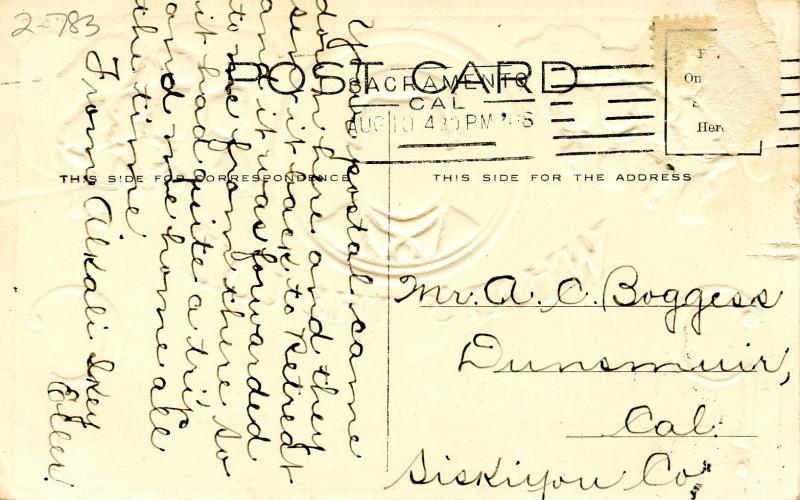 2-783
POST CARD
SACRAMENTO
CAL
AUG 10 4 30 PM '
THIS SIDE FOR CORRESPONDENCE
THIS SIDE FOR THE ADDRESS
On
Here
Your postal came
down here and they
sent it back to Retreat
and it was forwarded
to me from there so
it had quite a trip
and me home all
the time
From Alkali Ikey
Eller.
Mr. A. C. Boggess
Dunsmuir,
Cal.
Siskiyou Co.